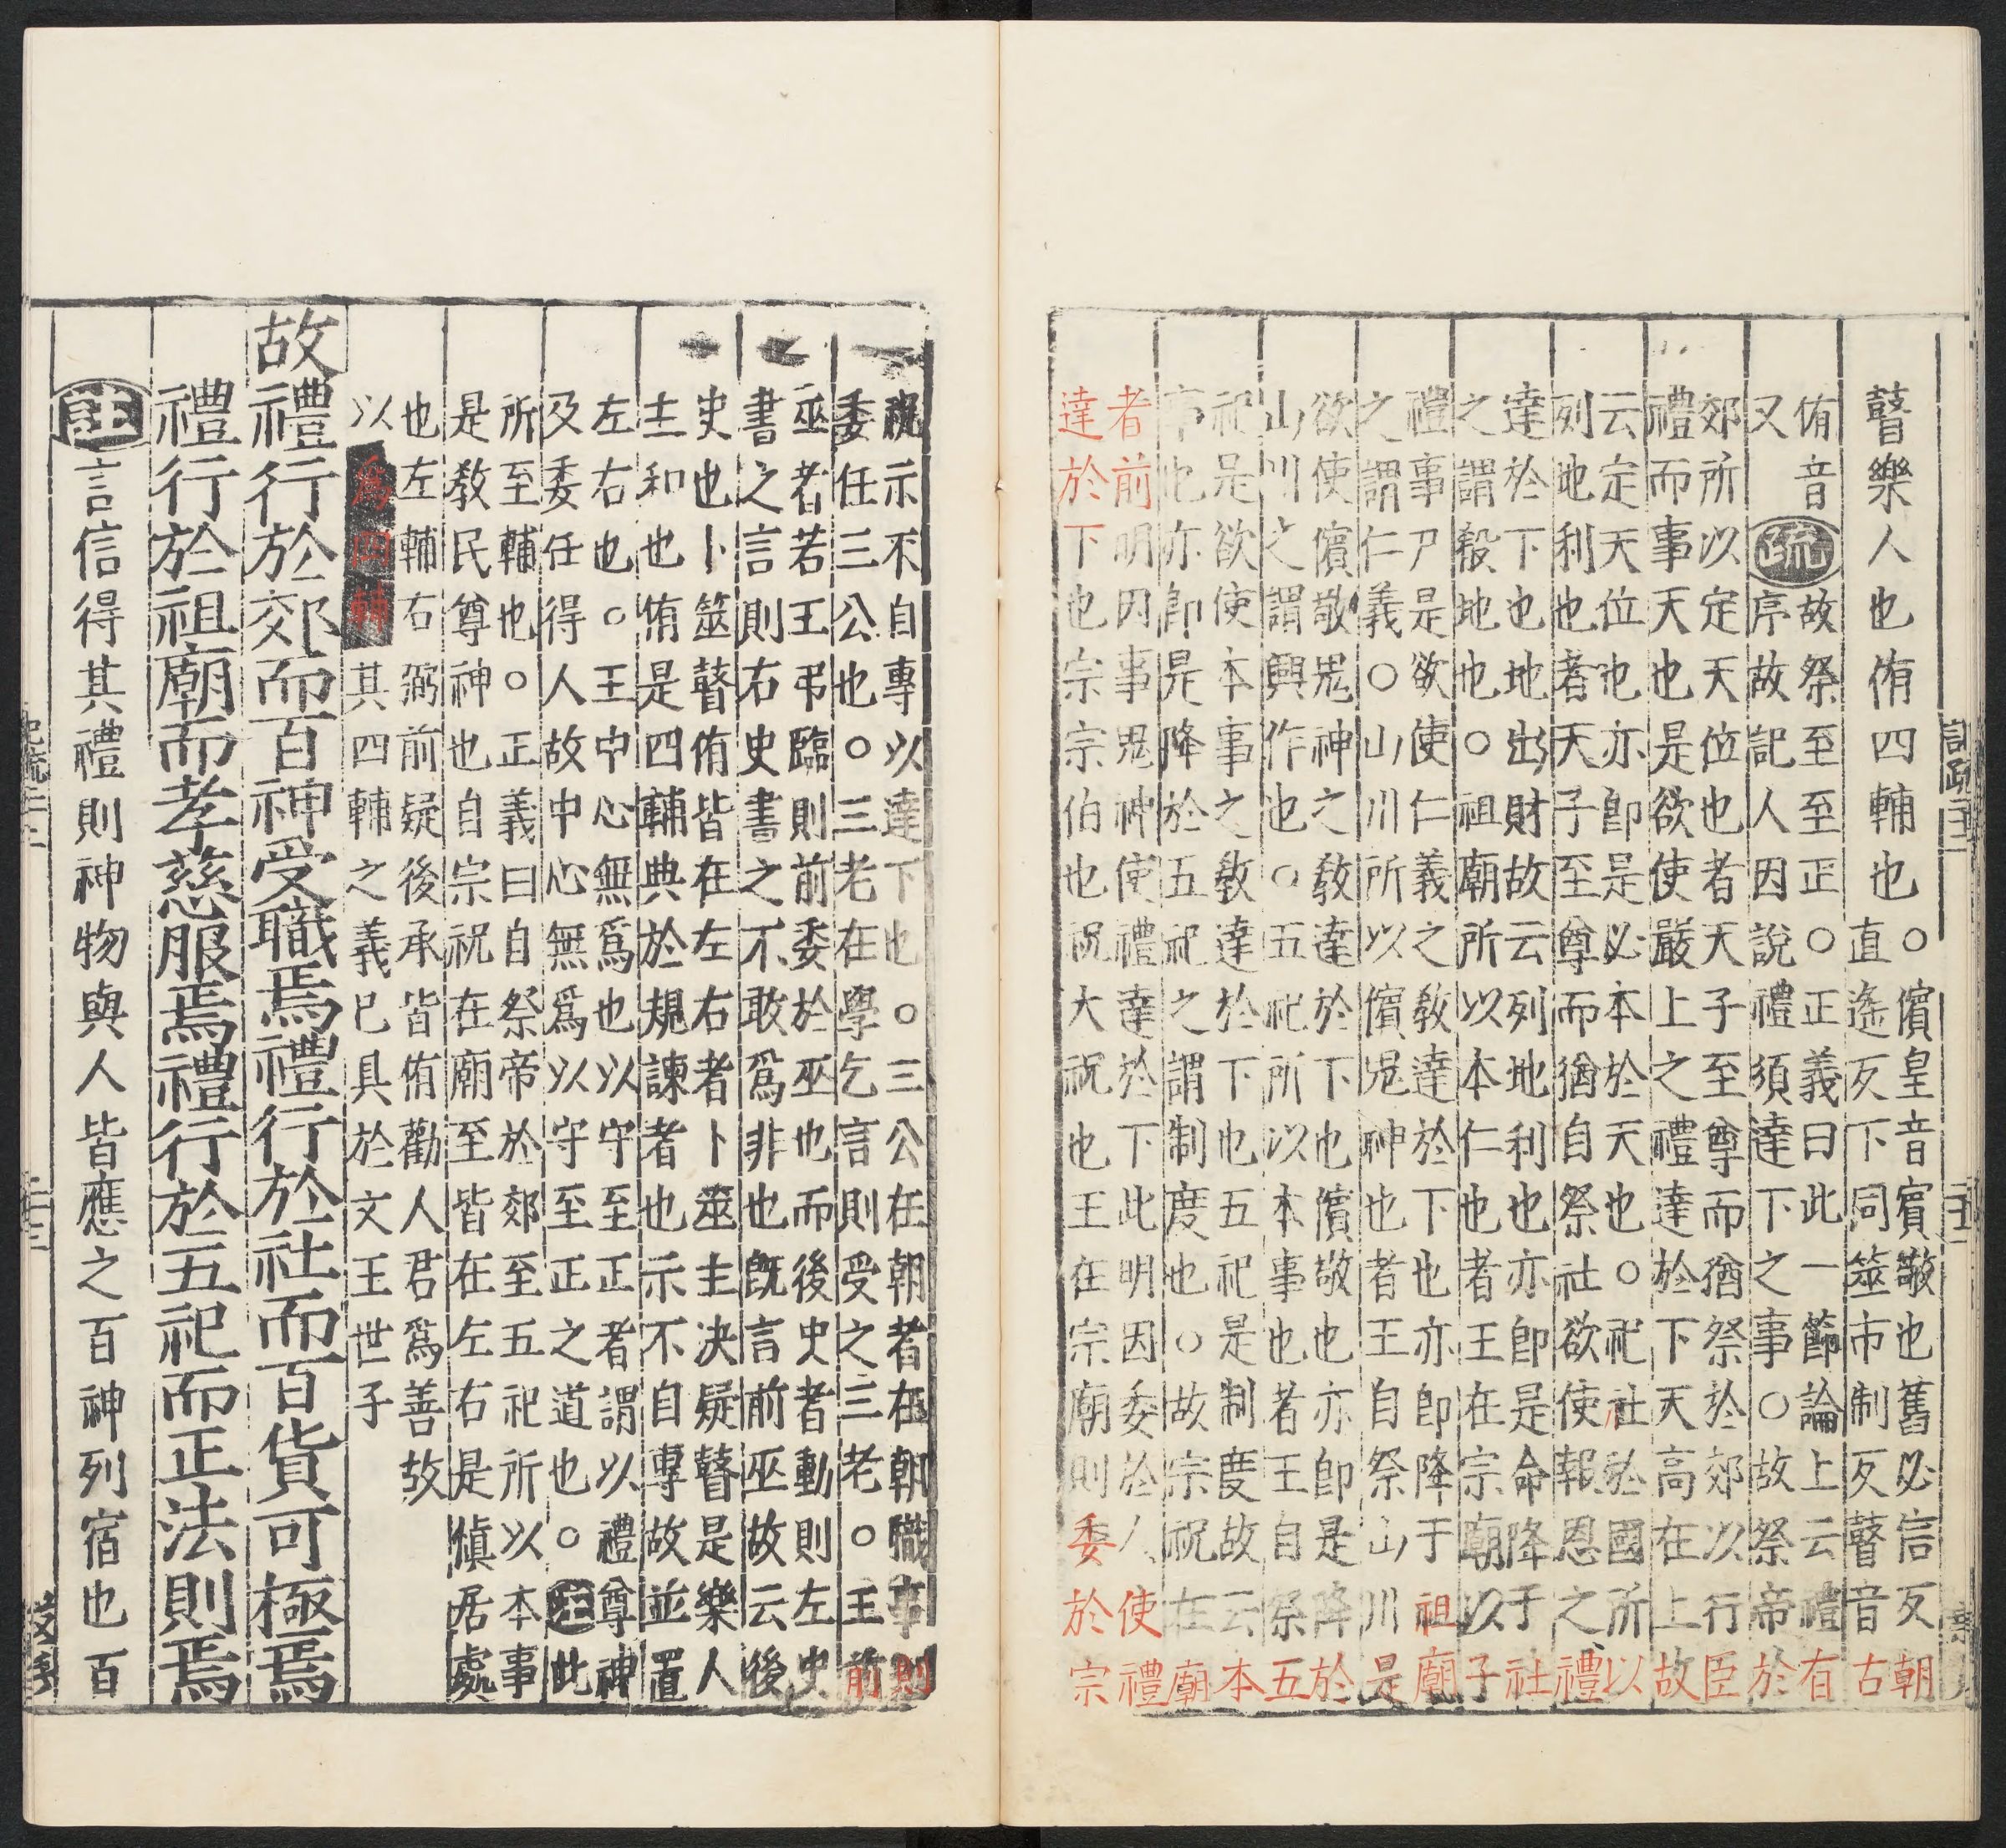 瞽樂人也侑四輔也○儐皇音賓敬也舊必信反朝
直遙反下同筮市制反瞽音古
侑音
又
疏
故祭至至正○正義曰此一節論上云禮有
序故記人因說禮須達下之事○故祭帝於
郊所以定天位也者天子至尊而猶祭於郊以行臣
禮而事天也是欲使嚴上之禮達於下天高在上故
云定天位也亦即是必本於天也○祀社於國所以
列地利也者天子至尊而猶自祭社欲使報恩之禮
達於下也地出財故云列地利也亦即是命降于社
之謂殽地也○祖廟所以本仁也者王在宗廟以子
禮事尸是欲使仁義之教達於下也亦即降于祖廟
之謂仁義○山川所以儐鬼神也者王自祭山川是
欲使儐敬鬼神之教達於下也儐敬也亦即是降於
山川之謂興作也○五祀所以本事也者王自祭五
祀是欲使本事之教達於下也五祀是制度故云本
事也亦即是降於五祀之謂制度也○故宗祝在廟
者前明因事鬼神使禮達於下此明因委於人使禮
達於下也宗宗伯也祝大祝也王在宗廟則委於宗
祝示不自專以達下也○三公在朝者在朝職事則
委任三公也○三老在學乞言則受之三老○王前
巫者若王弔臨則前委於巫也而後史者動則左史
書之言則右史書之不敢爲非也旣言前巫故云後
史也卜筮瞽侑皆在左右者卜筮主決疑瞽是樂人
主和也侑是四輔典於規諫者也示不自專故並置
左右也○王中心無爲也以守至正者謂以禮尊神
及委任得人故中心無爲以守至正之道也○註此
所至輔也○正義曰自祭帝於郊至五祀所以本事
是教民尊神也自宗祝在廟至皆在左右是愼居處
也左輔右弼前疑後承皆侑勸人君爲善故
以爲四輔其四輔之義已具於文王世子
故禮行於郊而百神受職焉禮行於社而百貨可極焉
禮行於祖廟而孝慈服焉禮行於五祀而正法則焉
註言信得其禮則神物與人皆應之百神列宿也百